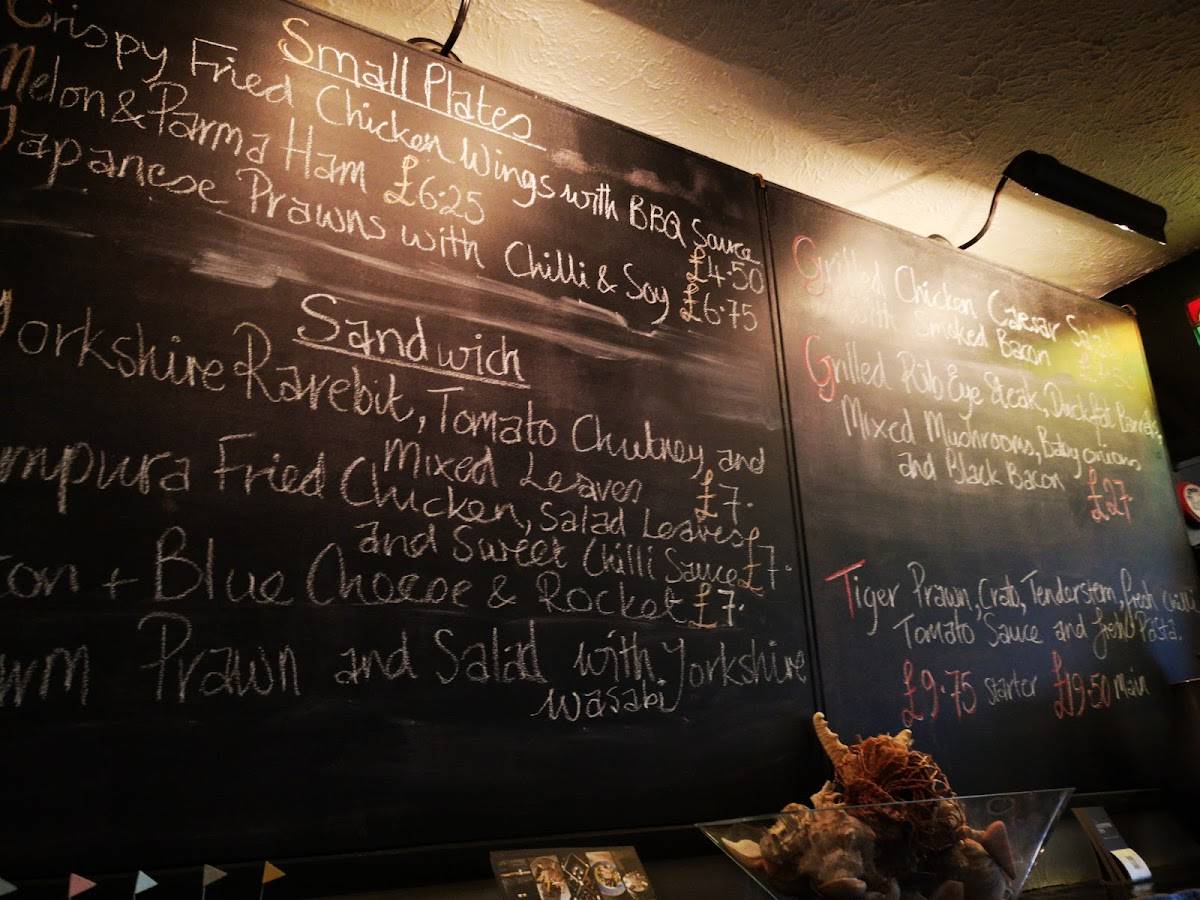 Small Plates
Crispy Fried Chicken Wings with BBQ Sauce
£4.50
Melon & Parma Ham £6.25
Japanese Prawns with Chilli & Soy £6.75
Sandwich
Yorkshire Rarebit, Tomato Chutney and
Mixed Leaves £7.
mpura Fried Chicken, Salad Leaves
and Sweet Chilli Sauce £7.
con + Blue Cheese & Rocket £7.
arm Prawn and Salad with Yorkshire
wasabi
Grilled Chicken Caesar Salad
with Smoked Bacon
Grilled Rib Eye Steak, Duckfat Barrels,
Mixed Mushrooms, Baby onions
and Black Bacon £27.
Tiger Prawn, Crab, Tenderstem, fresh chilli
Tomato Sauce and fresh Pasta.
£9.75 starter £19.50 Main